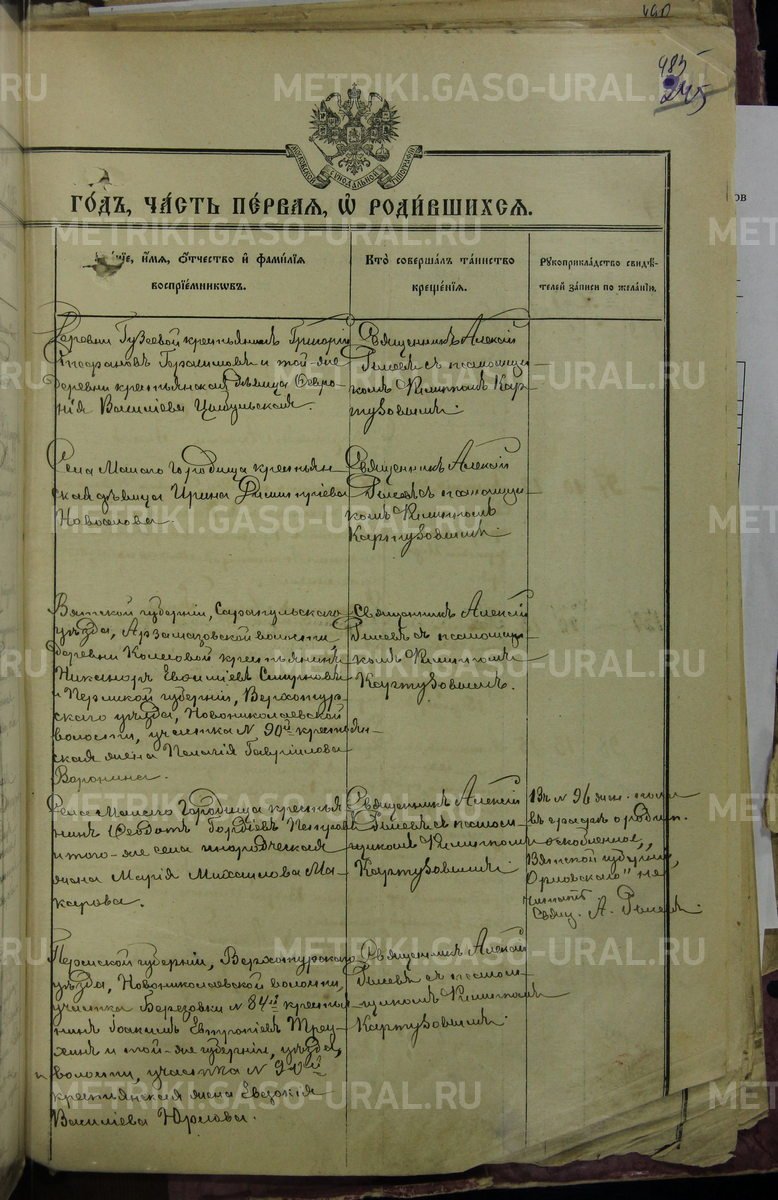 485
245
МОСКОВСКОЙ СѴНОДАЛЬНОЙ ТИПОГРАФІИ
ГО́ДЪ, ЧА́СТЬ ПЕ́РВАЯ, Ѿ РОДИ́ВШИХСѦ.
и́мѧ, ѻ҆́тчество и҆ фами́лїѧ
воспрїе́мникѡвъ.
Кто̀ соверша́лъ та́инство
креще́нїѧ.
Рꙋкоприкла́дство свидѣ́-
телей за́писи по жела́нїю.
Деревни Гузеевой крестьянинъ Григорій
Стефановъ Герасимовъ и той-же
деревни крестьянская дѣвица Февро-
нія Василіева Цигульская.
Священникъ Алексій
Пысевъ съ псаломщи-
комъ Филиппомъ Кар-
тузовымъ.
Села Малаго Городища крестьян-
ская дѣвица Ирина Димитріева
Новоселова.
Священникъ Алексій
съ псаломщи-
комъ Филиппомъ
Картузовымъ.
Вятской губерніи, Сарапульскаго
уѣзда, Арзамазовской волости
деревни крестьянинъ
Никаноръ Смирновъ
и Пермской губерніи, Верхотур-
скаго уѣзда, Новониколаевской
волости, участка № 90й крестьян-
ская жена Пелагія Гавріилова
Воронина.
Священникъ Алексій
съ псаломщи-
комъ Филиппомъ
Картузовымъ.
Села Малаго Городища крестья-
нинъ Ѳеодотъ Гордіевъ Петровъ
и того-же села инородческая
жена Марія Михаилова Ма-
карова.
Священникъ Алексій
съ псалом-
щикомъ Филиппомъ
Картузовымъ.
Въ № 96 жен. пола
въ графѣ о родит.
оскобленное „
Вятской губерніи,
Орловскаго" не
читать
Свящ. А.
Пермской губерніи, Верхотурскаго
уѣзда, Новониколаевской волости,
участка Березовки № 84й крестья-
нинъ Іоакимъ Евтропіевъ
и той-же губерніи, уѣзда,
волости, участка № 90й
крестьянская жена Евдокія
Василіева Юрлова.
Священникъ Алексій
съ псалом-
щикомъ Филиппомъ
Картузовымъ.
METRIKI.GASO-URAL.RU